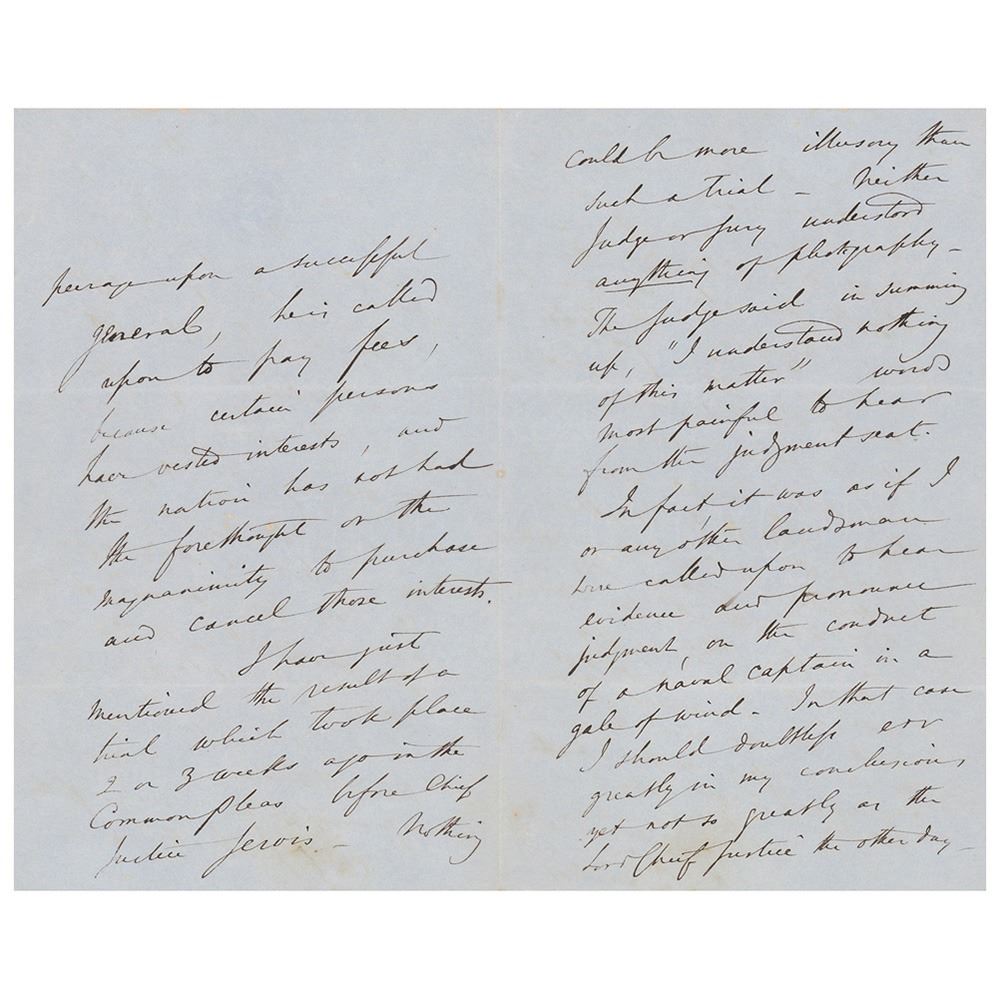 peerage upon a successful
general, he is called
upon to pay fees,
because certain persons
have vested interests, and
the nation has not had
the forethought or the
magnanimity to purchase
and cancel those interests.
I have just
mentioned the result of a
trial which took place
2 or 3 weeks ago in the
Common Pleas before Chief
Justice Jervis. - Nothing
could be more illusory than
such a trial - Neither
Judge or Jury understood
anything of photography -
The Judge said in summing
up, "I understand nothing
of this matter" words
most painful to hear
from the judgment seat.
In fact, it was as if I
or any other landsman
were called upon to hear
evidence and pronounce
judgment, on the conduct
of a naval captain in a
gale of wind - In that case
I should doubtless err
greatly in my conclusions,
yet not so greatly as the
Lord Chief Justice the other day -